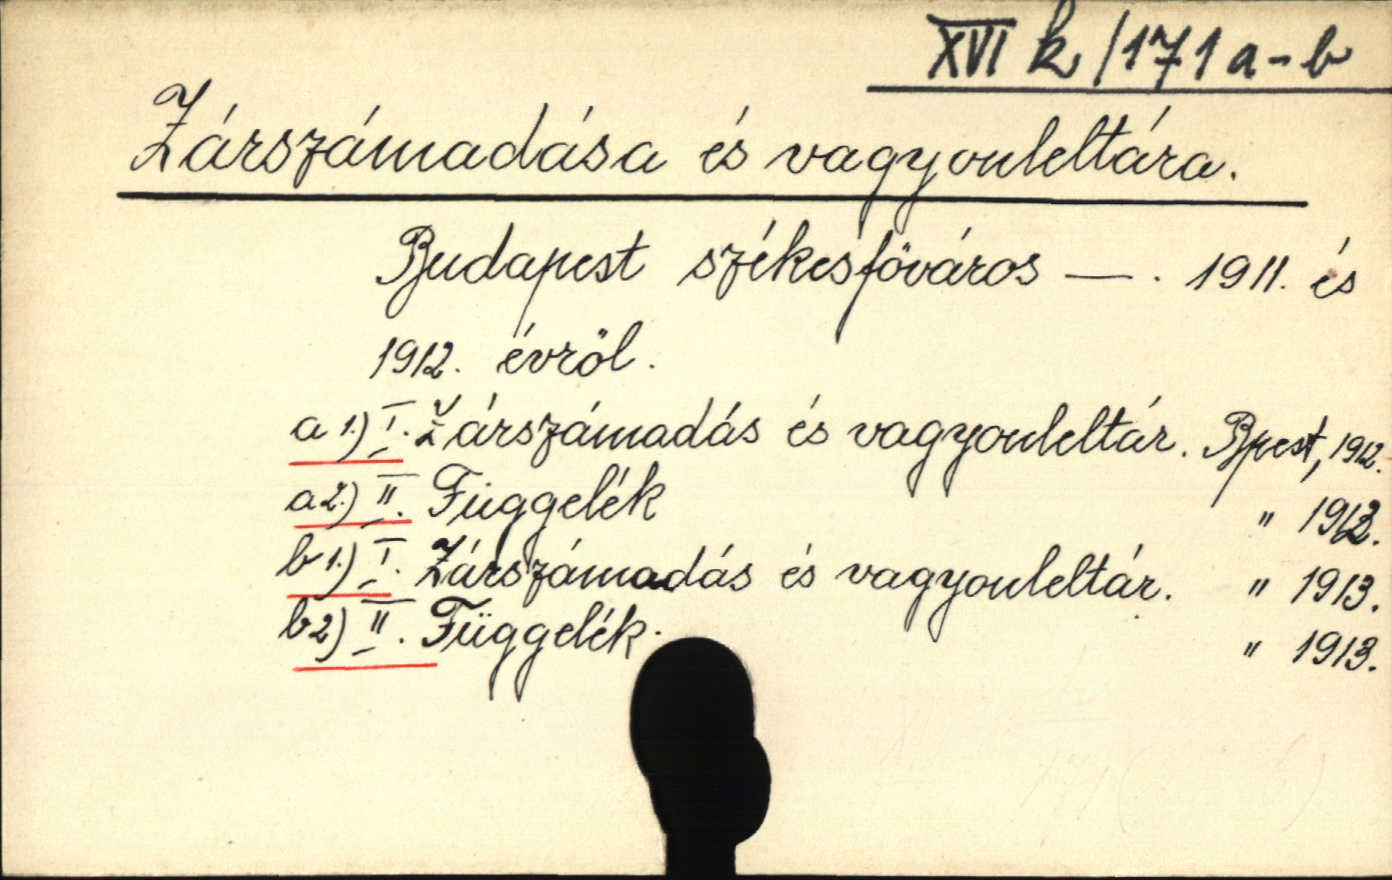 XVI k/171 a-b
Zárszámadása és vagyonleltára.
Budapest székesfőváros — . 1911. és
1912. évről.
a 1.) I. Zárszámadás és vagyonleltár. Bpest, 1912.
a 2.) II. Függelék " 1912.
b 1.) I. Zárszámadás és vagyonleltár. " 1913.
b 2) II. Függelék. " 1913.